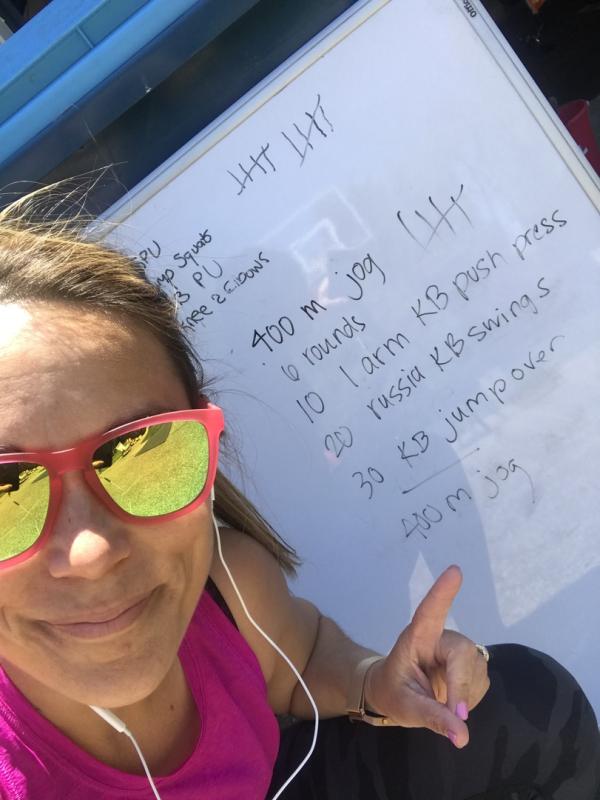 PU
Squats
PU
Elbows
400 m jog
6 rounds
10 1 arm KB push press
20 russia KB swings
30 KB jump over
400 m jog